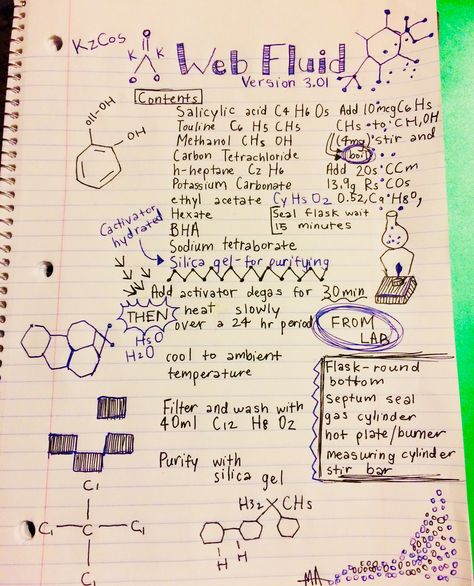 KzCos
K K
Web Fluid
Version 3.01
Contents
all-OH
OH
Salicylic acid C4 H6 Os Add 10mcgC6Hs
Touline C6 H5 CHs CHs to CH,OH
Methanol CHs OH (4mg) stir and
Carbon Tetrachloride boil
h-heptane Cz H6 Add 20s CCm
Potassium Carbonate 13.9g Rs COs
ethyl acetate CyHsO2 0.52,Ca H8O,
Hexate Seal flask wait
BHA 15 minutes
Sodium tetraborate
Cactivator
hydrated
Silica gel-for purifying
Add activator degas for 30 min
THEN heat slowly
over a 24 hr period
FROM
LAB
HsO
H2O
cool to ambient
temperature
Flask-round
bottom
Septum seal
gas cylinder
hot plate/burner
measuring cylinder
stir bar
Filter and wash with
40ml C12 H8 O2
Purify with
silica gel
C1
C1 C C1
C1
H32 CHs
H H
MA